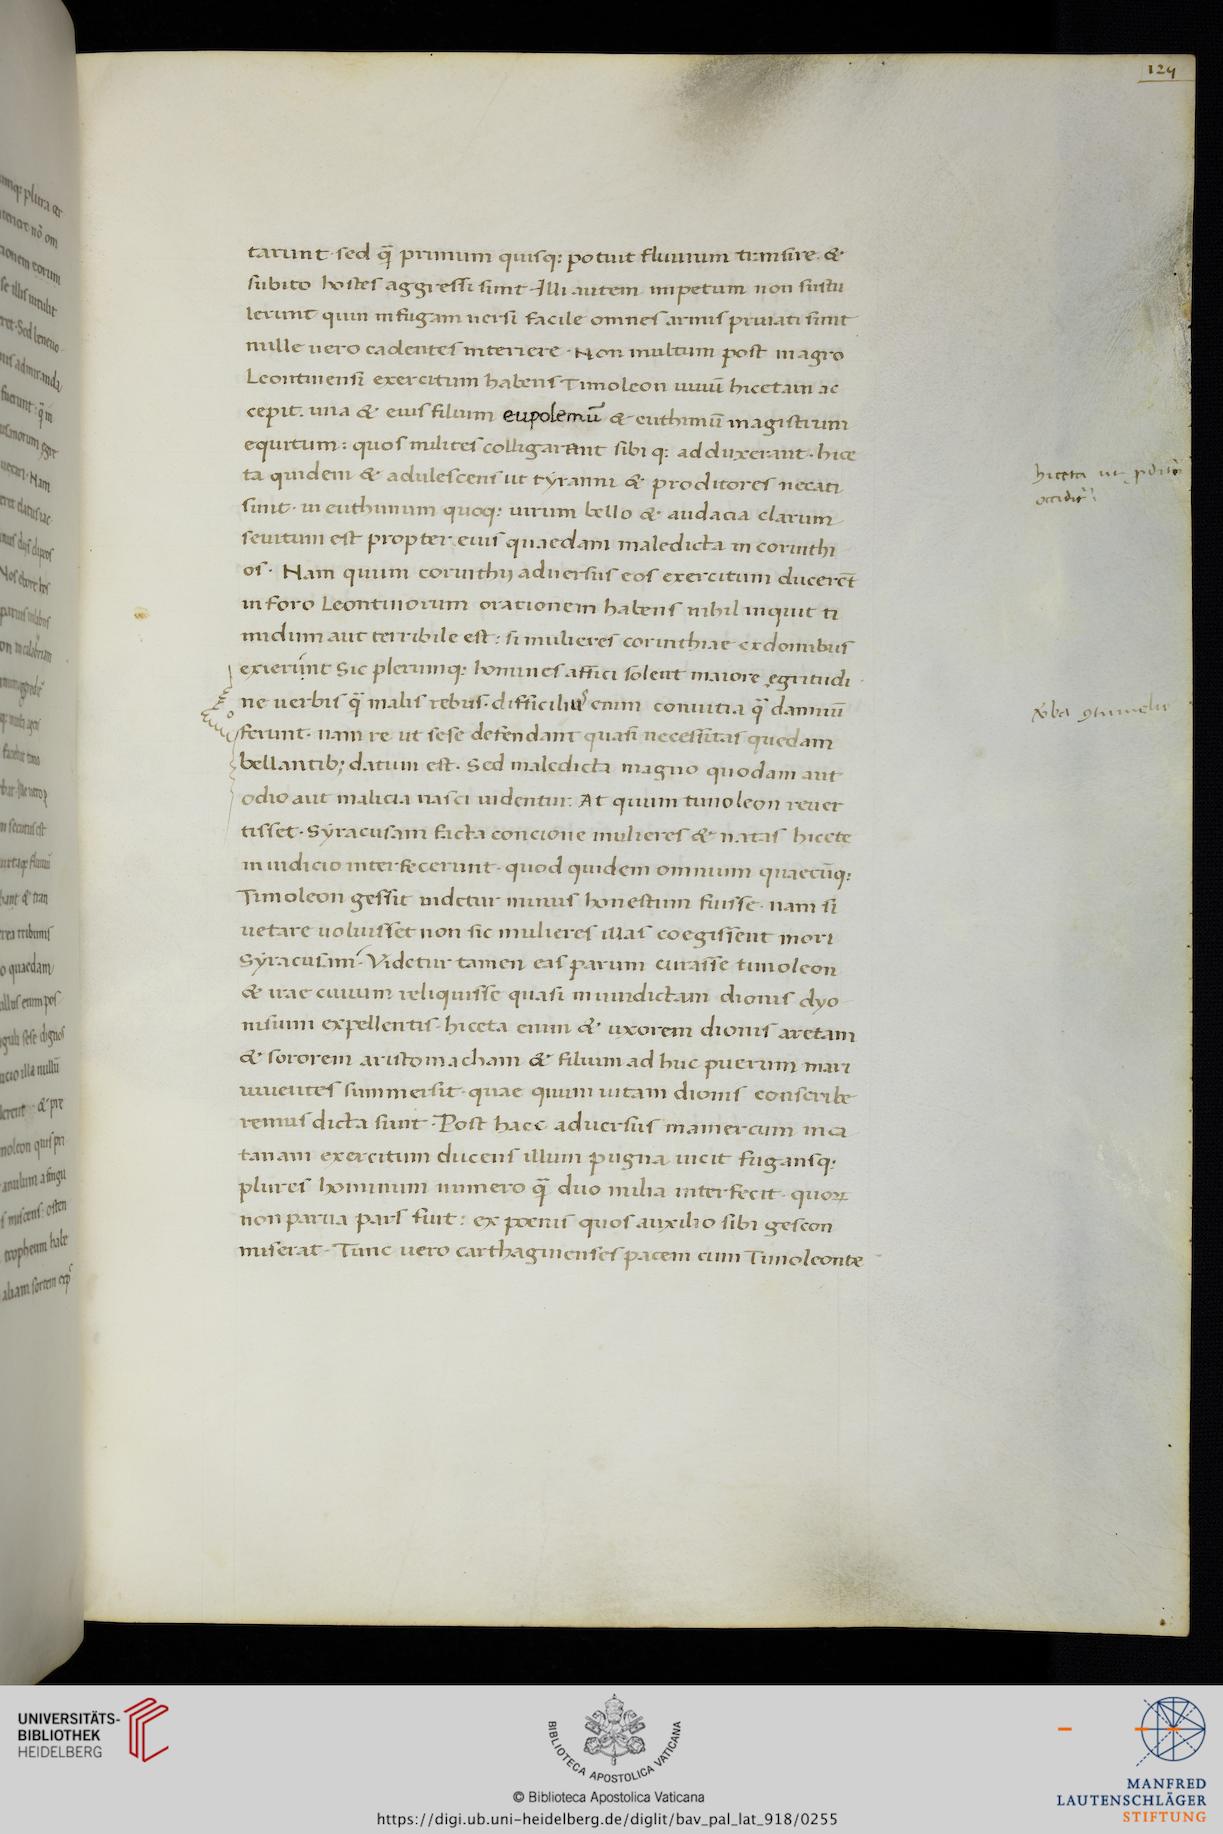 124
tarunt · sed q̄ primum quisq; potuit fluuium transire &
subito hostes aggressi sunt · Illi autem impetum non sustu
lerunt quin in fugam uersi facile omnes armis priuati sunt
mille uero cadentes interiere · Non multum post in agro
Leontinensi exercitum habens Timoleon uiuū hicetam ac
cepit · una & eius filium eupolemū & euthimū magistrum
equitum : quos milites colligarant sibi q; adduxerant · hice
ta quidem & adulescens ut tyranni & proditores necati
sunt · in euthimum quoq; uirum bello & audacia clarum
seuitum est propter eius quaedam maledicta in corinthi
os · Nam quum corinthij aduersus eos exercitum ducerēt
in foro Leontinorum orationem habens nihil inquit ti
midum aut terribile est : si mulieres corinthiae ex domibus
exierunt Sic plerumq; homines affici solent maiore ęgritudi
ne uerbis q̄ malis rebus · difficiliꝰ enim conuitia q̄ damnū
ferunt · nam re ut sese defendant quasi necessitas quedam
bellantib; datum est · Sed maledicta magno quodam aut
odio aut malicia nasci uidentur · At quum timoleon reuer
tisset · Syracusam facta concione mulieres & natas hicete
in iudicio interfecerunt · quod quidem omnium quaecūq;
Timoleon gessit uidetur minus honestum fuisse · nam si
uetare uoluisset non sic mulieres illas coegissent mori
Syracusani · Videtur tamen eas parum curasse timoleon
& irae ciuium reliquisse quasi in uindictam dionis dyo
nisium expellentis · hiceta enim & uxorem dionis aretam
& sororem aristomacham & filium ad huc puerum mari
uiuentes summersit · quae quum uitam dionis conscribe
remus dicta sunt · Post haec aduersus mamercum in ca
tanam exercitum ducens illum pugna uicit fugansq;
plures hominum numero q̄ duo milia interfecit · quoꝝ
non parua pars fuit : ex poenis quos auxilio sibi gescon
miserat · Tunc uero carthaginenses pacem cum Timoleonte
hiceta ut
UNIVERSITÄTS-
BIBLIOTHEK
HEIDELBERG
BIBLIOTECA APOSTOLICA VATICANA
© Biblioteca Apostolica Vaticana
https://digi.ub.uni-heidelberg.de/diglit/bav_pal_lat_918/0255
MANFRED
LAUTENSCHLÄGER
STIFTUNG